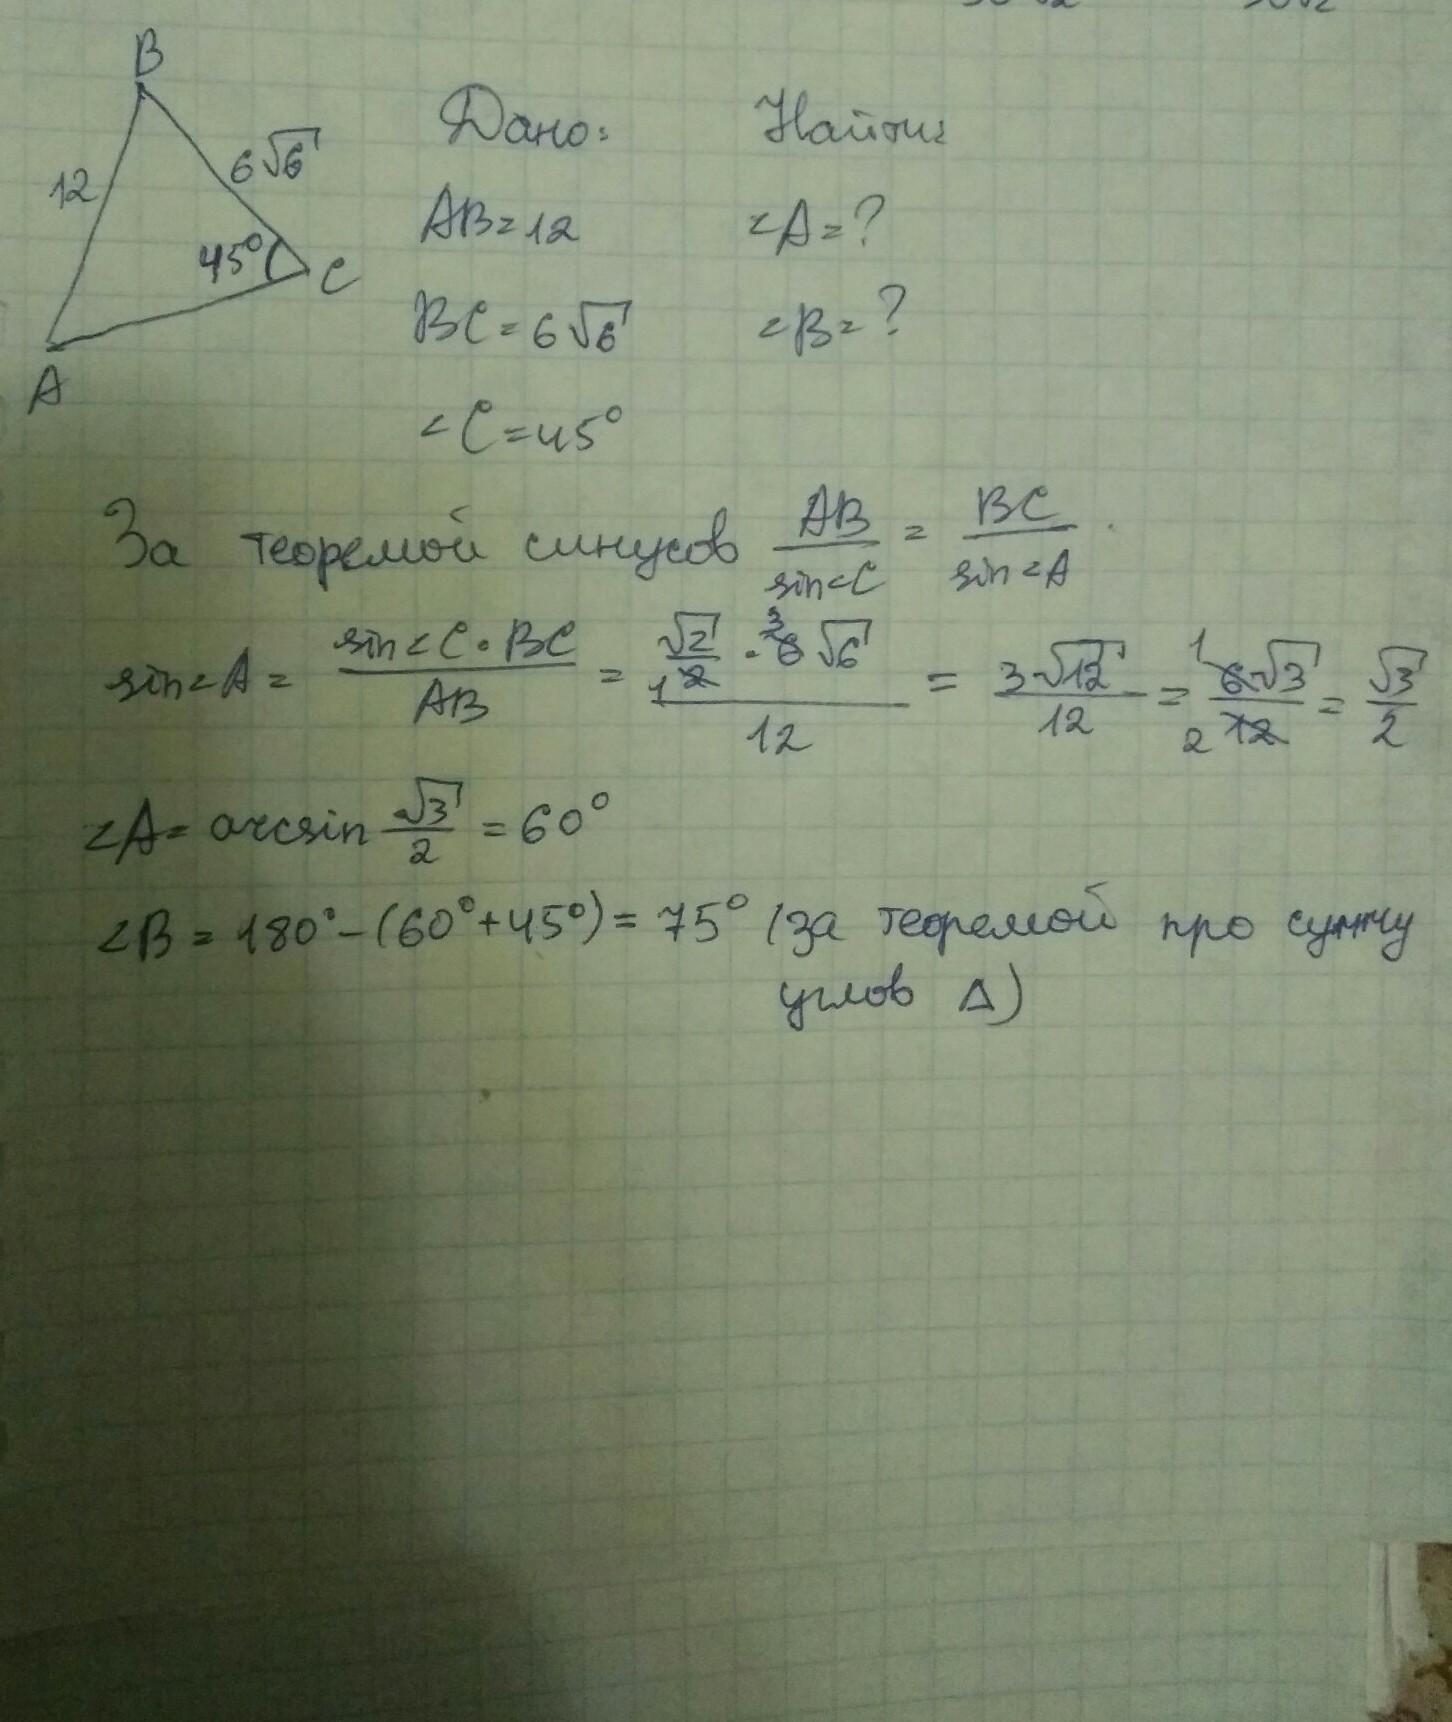 B
12
6√6
45°
C
A
Дано: Найти:
AB=12 ∠A=?
BC=6√6 ∠B=?
∠C=45°
За теоремой синусов AB/sin∠C = BC/sin∠A.
sin∠A = (sin∠C·BC)/AB = (√2/2 · 6√6)/12 = 3√12/12 = 6√3/12 = √3/2
∠A= arcsin √3/2 = 60°
∠B = 180°-(60°+45°)= 75° (за теоремой про сумму
углов Δ)